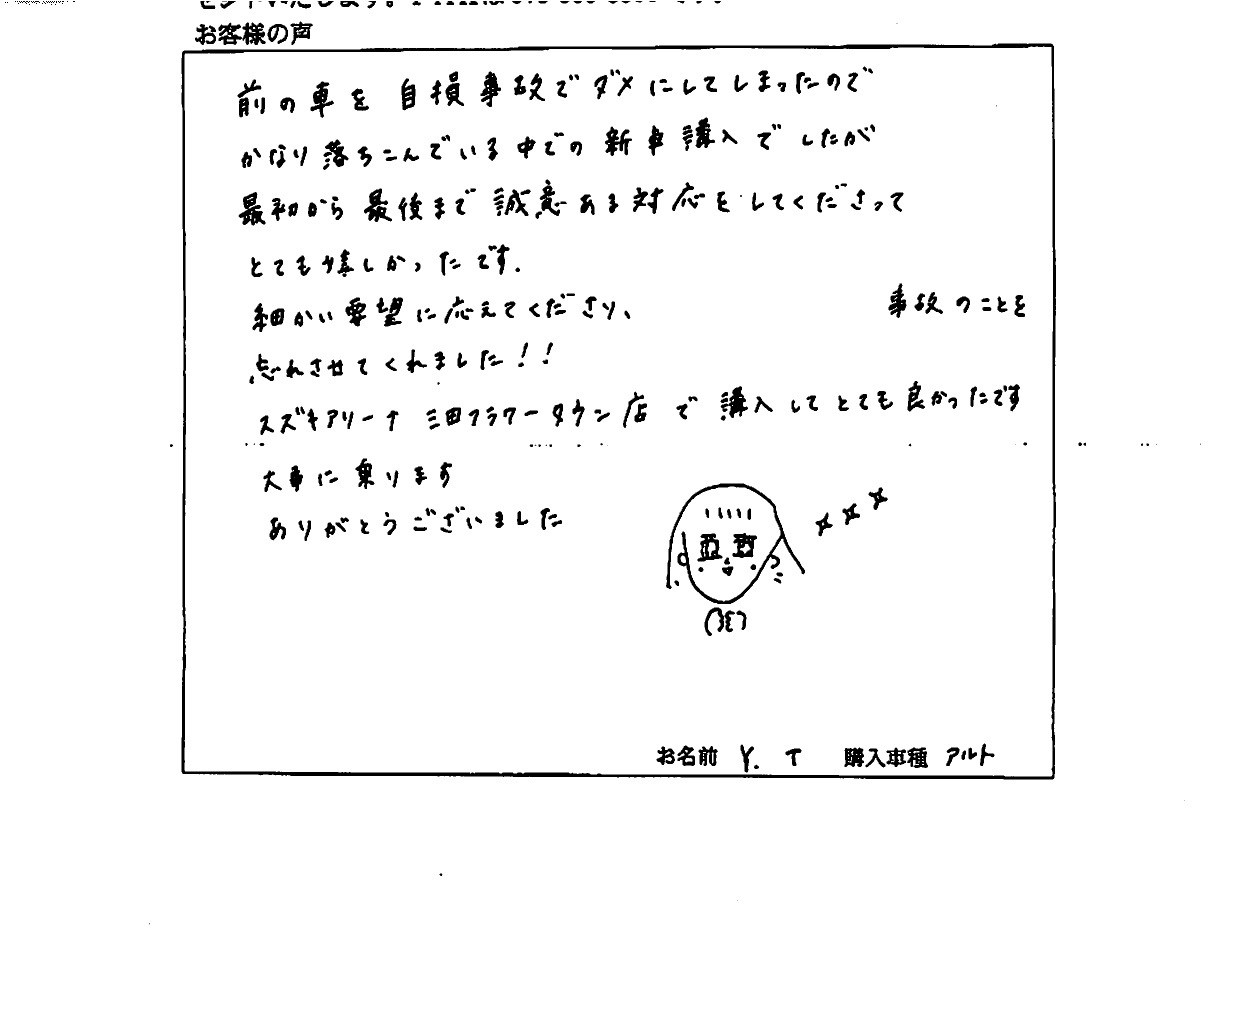 お客様の声
前の車を自損事故でダメにしてしまったので
かなり落ちこんでいる中での新車購入でしたが
最初から最後まで誠意ある対応をしてくださって
とても嬉しかったです.
細かい要望に応えてくださり、 事故のことを
忘れさせてくれました!!
スズキアリーナ 三田フラワータウン店で購入してとても良かったです
大事に乗ります
ありがとうございました
お名前 Y. T 購入車種 アルト